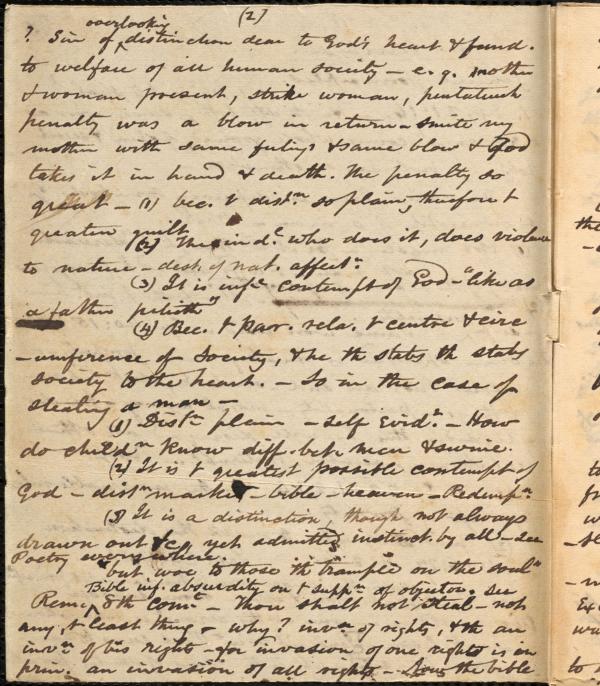 (2)
overlooking
? Sin of distinction dear to God's heart & fund.
to welfare of all human society – e. g. mother
& woman present, strike woman, pentateuch
penalty was a blow in return – smite my
mother with same feelings & same blow & God
takes it in hand & death. The penalty so
great – (1) bec. t distn so plain, therefore t
greater guilt
(2) The indl. who does it, does violence
to nature – dest. of nat. affectn.
(3) It is infe contempt of God – "like as
a father pitieth"
(4) Bec. t par. rela. t centre & circ
-umference of Society, & he th stabs th stabs
society to the heart. – So in the case of
stealing a man –
(1) Distn plain – self evidt. – How
do childn know diff. beth men & swine.
(2) It is t greatest possible contempt of
God – distn marked – bible – heaven – Redempn
(3) It is a distinction, though not always
drawn out &c, yet admitted instinct. by all – see
Poetry everywhere.
"but woe to those th trample on the soul"
Bible inf. absurdity on t suppn of objector. See
Rem. 8th Comt – thou shalt not steal – not
any, t least thing – why? invn of rights, & th an
invn of his rights – for invasion of one right is in
prin. an invasion of all rights – the bible